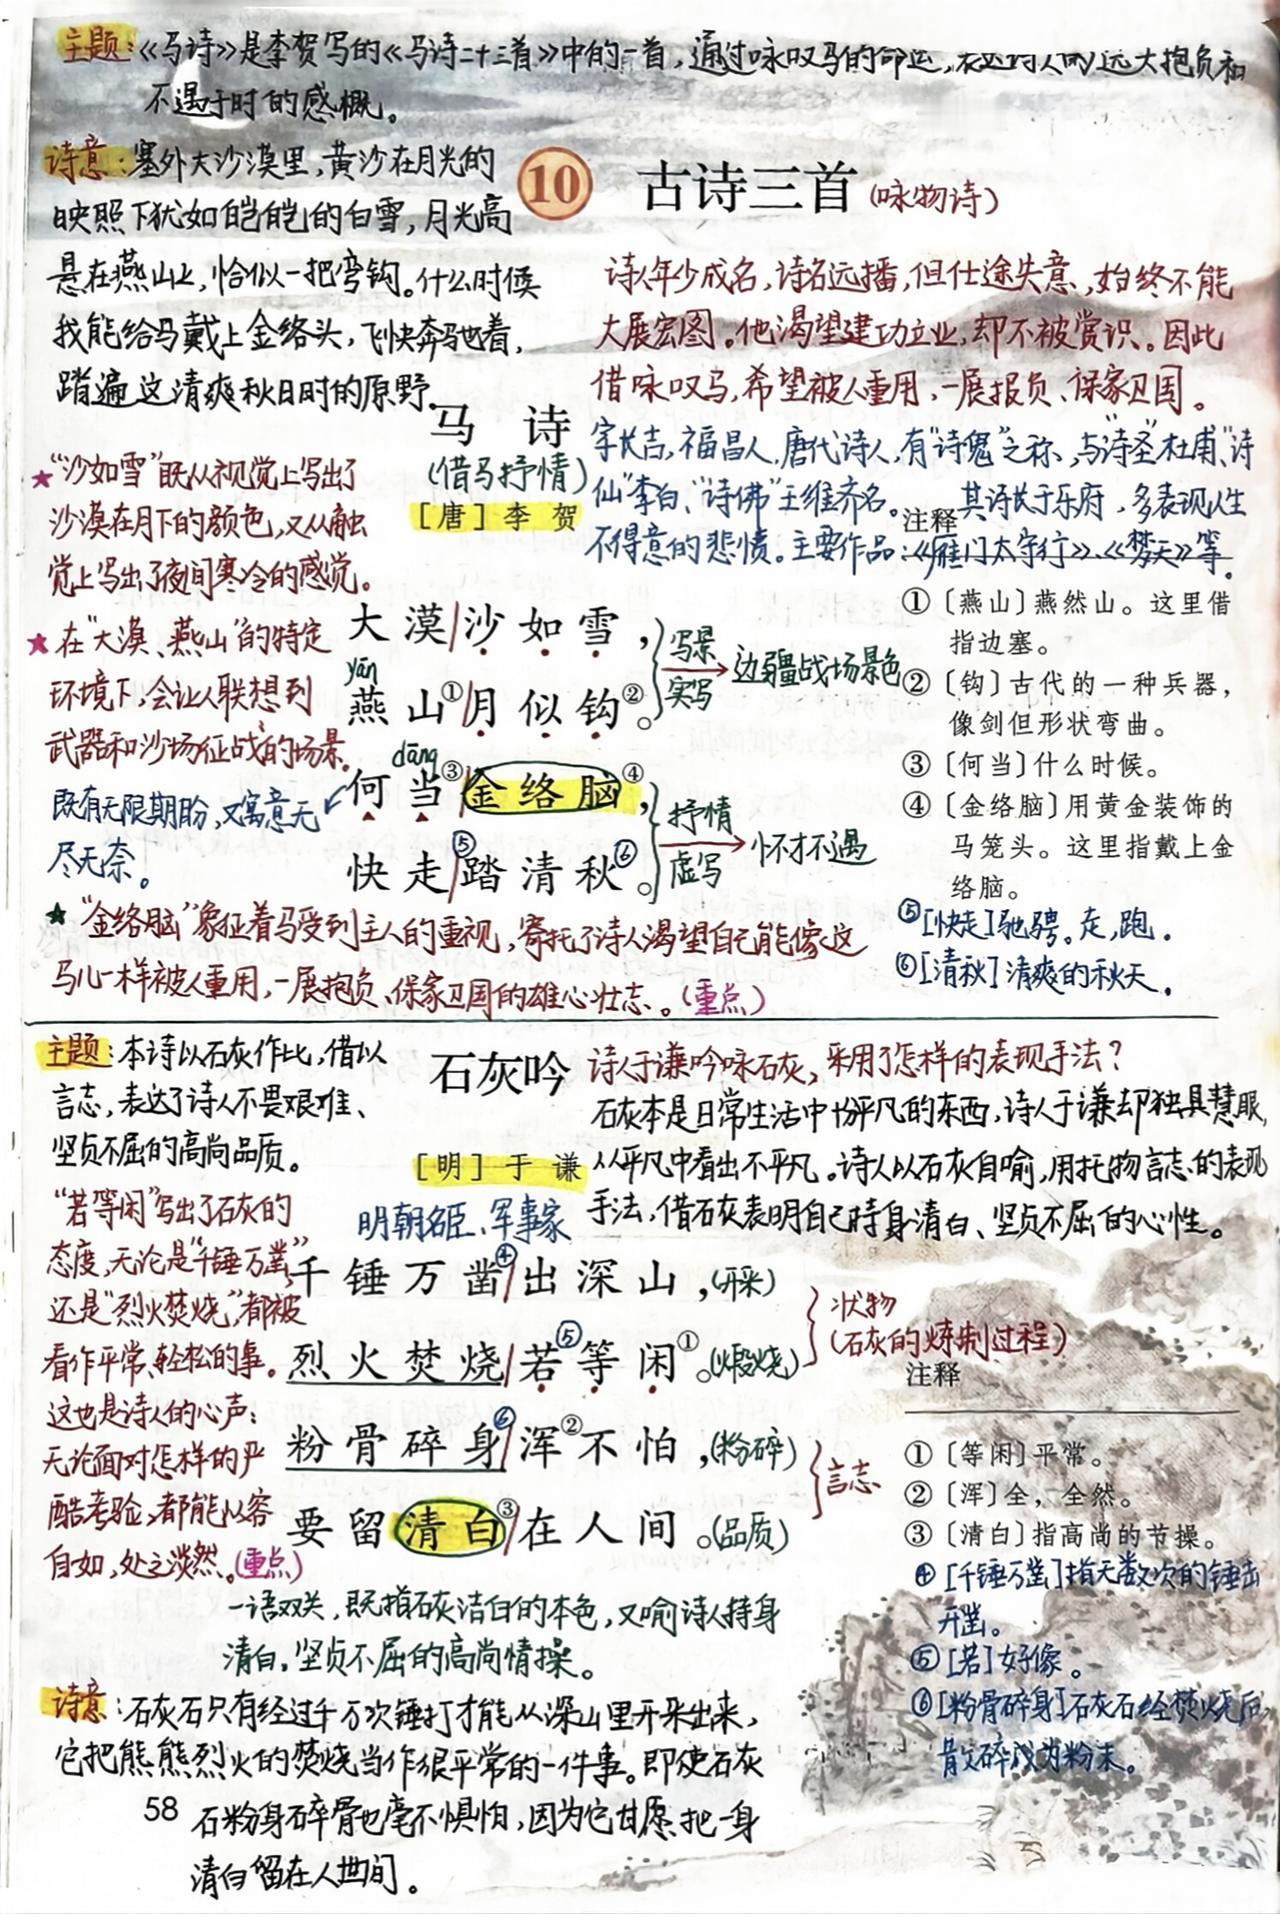 主题:《马诗》是李贺写的《马诗二十三首》中的一首,通过咏叹马的命运,表达诗人的远大抱负和
不遇于时的感慨。
诗意:塞外大沙漠里,黄沙在月光的
映照下犹如皑皑的白雪,月光高
悬在燕山上,恰似一把弯钩。什么时候
我能给马戴上金络头,飞快奔驰着,
踏遍这清爽秋日时的原野。
10 古诗三首(咏物诗)
诗人年少成名,诗名远播,但仕途失意,始终不能
大展宏图。他渴望建功立业,却不被赏识。因此
借咏叹马,希望被人重用,一展报负、保家卫国。
马 诗
(借马抒情)
[唐] 李 贺
字长吉,福昌人,唐代诗人,有“诗鬼”之称,与“诗圣”杜甫、“诗
仙”李白、“诗佛”王维齐名。其诗长于乐府,多表现人生
不得意的悲愤。主要作品:《雁门太守行》、《梦天》等。
★“沙如雪”既从视觉上写出了
沙漠在月下的颜色,又从触
觉上写出了夜间寒冷的感觉。
★在“大漠、燕山”的特定
环境下,会让人联想到
武器和沙场征战的场景。
既有无限期盼,又寓意无
尽无奈。
大漠/沙如雪,
yān
燕山①/月似钩②。
写景
实写
边疆战场景色
dāng
何当③/金络脑④,
快走⑤/踏清秋⑥。
抒情
虚写
怀才不遇
注释
①〔燕山〕燕然山。这里借
指边塞。
②〔钩〕古代的一种兵器,
像剑但形状弯曲。
③〔何当〕什么时候。
④〔金络脑〕用黄金装饰的
马笼头。这里指戴上金
络脑。
⑤[快走]驰骋。走,跑。
⑥[清秋]清爽的秋天。
★“金络脑”象征着马受到主人的重视,寄托了诗人渴望自己能像这
马儿一样被人重用,一展抱负、保家卫国的雄心壮志。(重点)
主题:本诗以石灰作比,借以
言志,表达了诗人不畏艰难、
坚贞不屈的高尚品质。
石灰吟
[明] 于 谦
明朝名臣、军事家
诗人于谦吟咏石灰,采用了怎样的表现手法?
石灰本是日常生活中十份平凡的东西,诗人于谦却独具慧眼,
从平凡中看出不平凡。诗人以石灰自喻,用托物言志的表现
手法,借石灰表明自己持身清白、坚贞不屈的心性。
“若等闲”写出了石灰的
态度,无论是“千锤万凿”,
还是“烈火焚烧”,都被
看作平常、轻松的事。
这也是诗人的心声:
无论面对怎样的严
酷考验,都能从容
自如,处之淡然。(重点)
千锤万凿④/出深山,(开采)
烈火焚烧/若⑤等闲①。(煅烧)
粉骨碎身⑥/浑②不怕,(粉碎)
要留清白③/在人间。(品质)
状物
(石灰的炼制过程)
言志
注释
①〔等闲〕平常。
②〔浑〕全,全然。
③〔清白〕指高尚的节操。
④[千锤万凿]指无数次的锤击
开凿。
⑤[若]好像。
⑥[粉骨碎身]石灰石经焚烧后
散碎成为粉末。
一语双关,既指石灰洁白的本色,又喻诗人持身
清白,坚贞不屈的高尚情操。
诗意:石灰石只有经过千万次锤打才能从深山里开采出来,
它把熊熊烈火的焚烧当作很平常的一件事。即使石灰
石粉身碎骨也毫不惧怕,因为它甘愿把一身
清白留在人世间。
58